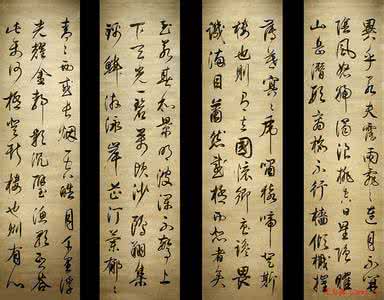 異乎若夫霪雨霏々連月不開
陰風怒號濁浪排空日星隱曜
山岳潛形商旅不行檣傾楫摧
薄暮冥々虎嘯猿啼登斯
樓也則有去國懷鄉憂讒畏
譏滿目蕭然感極而悲者矣
至若春和景明波瀾不驚上
下天光一碧萬頃沙鷗翔集
錦鱗游泳岸芷汀蘭郁々
青々而或長煙一空皓月千里浮
光耀金靜影沉璧漁歌互答
此樂何極登斯樓也則有心